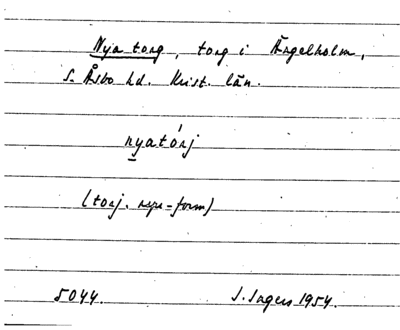 Nya torg, torg i Ängelholm,
S. Åsbo hd. Krist. län.
nyatórj
(torj. nyu-form)
5044. I. Ingers 1954.